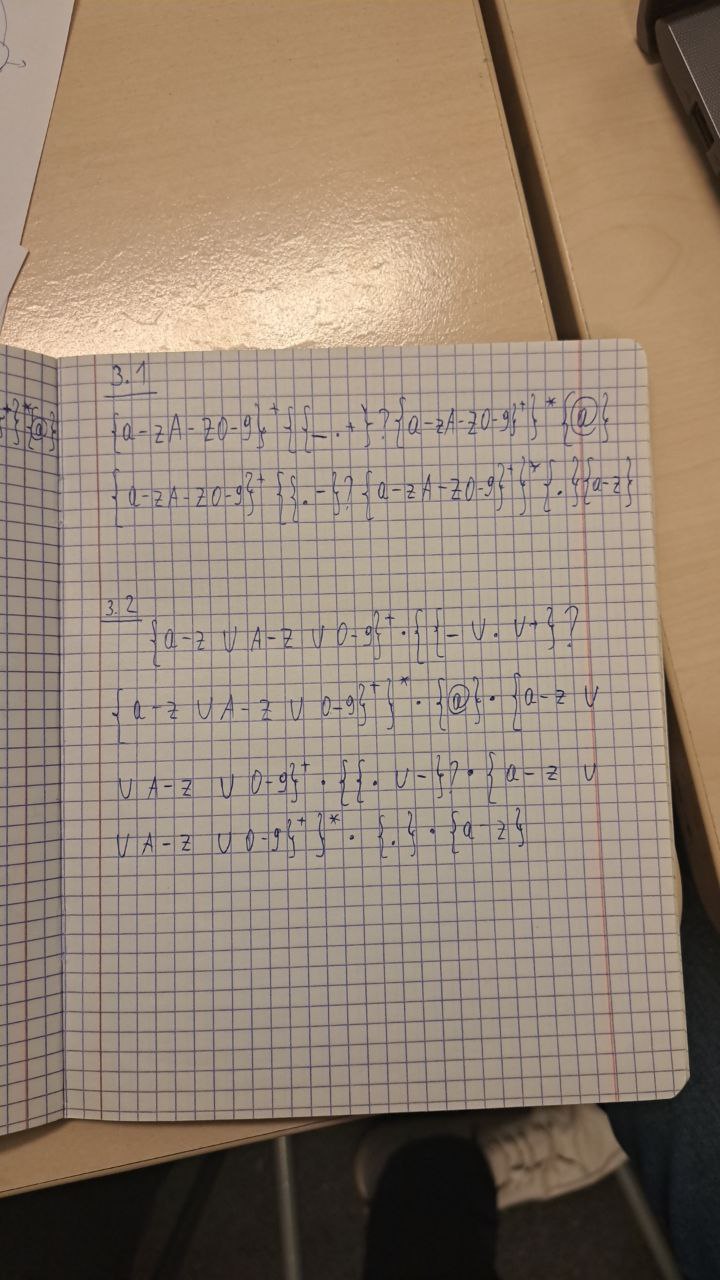 ⁺}*{@}
3.1
{a-zA-Z0-9}⁺{{_.+}?{a-zA-Z0-9}⁺}*{@}
{a-zA-Z0-9}⁺{{.-}?{a-zA-Z0-9}⁺}*{.}{a-z}
3.2
{a-z ∪ A-Z ∪ 0-9}⁺·{{- ∪ . ∪ +}?
{a-z ∪ A-Z ∪ 0-9}⁺}*·{@}·{a-z ∪
∪ A-Z ∪ 0-9}⁺·{{. ∪ -}?·{a-z ∪
∪ A-Z ∪ 0-9}⁺}*·{.}·{a-z}